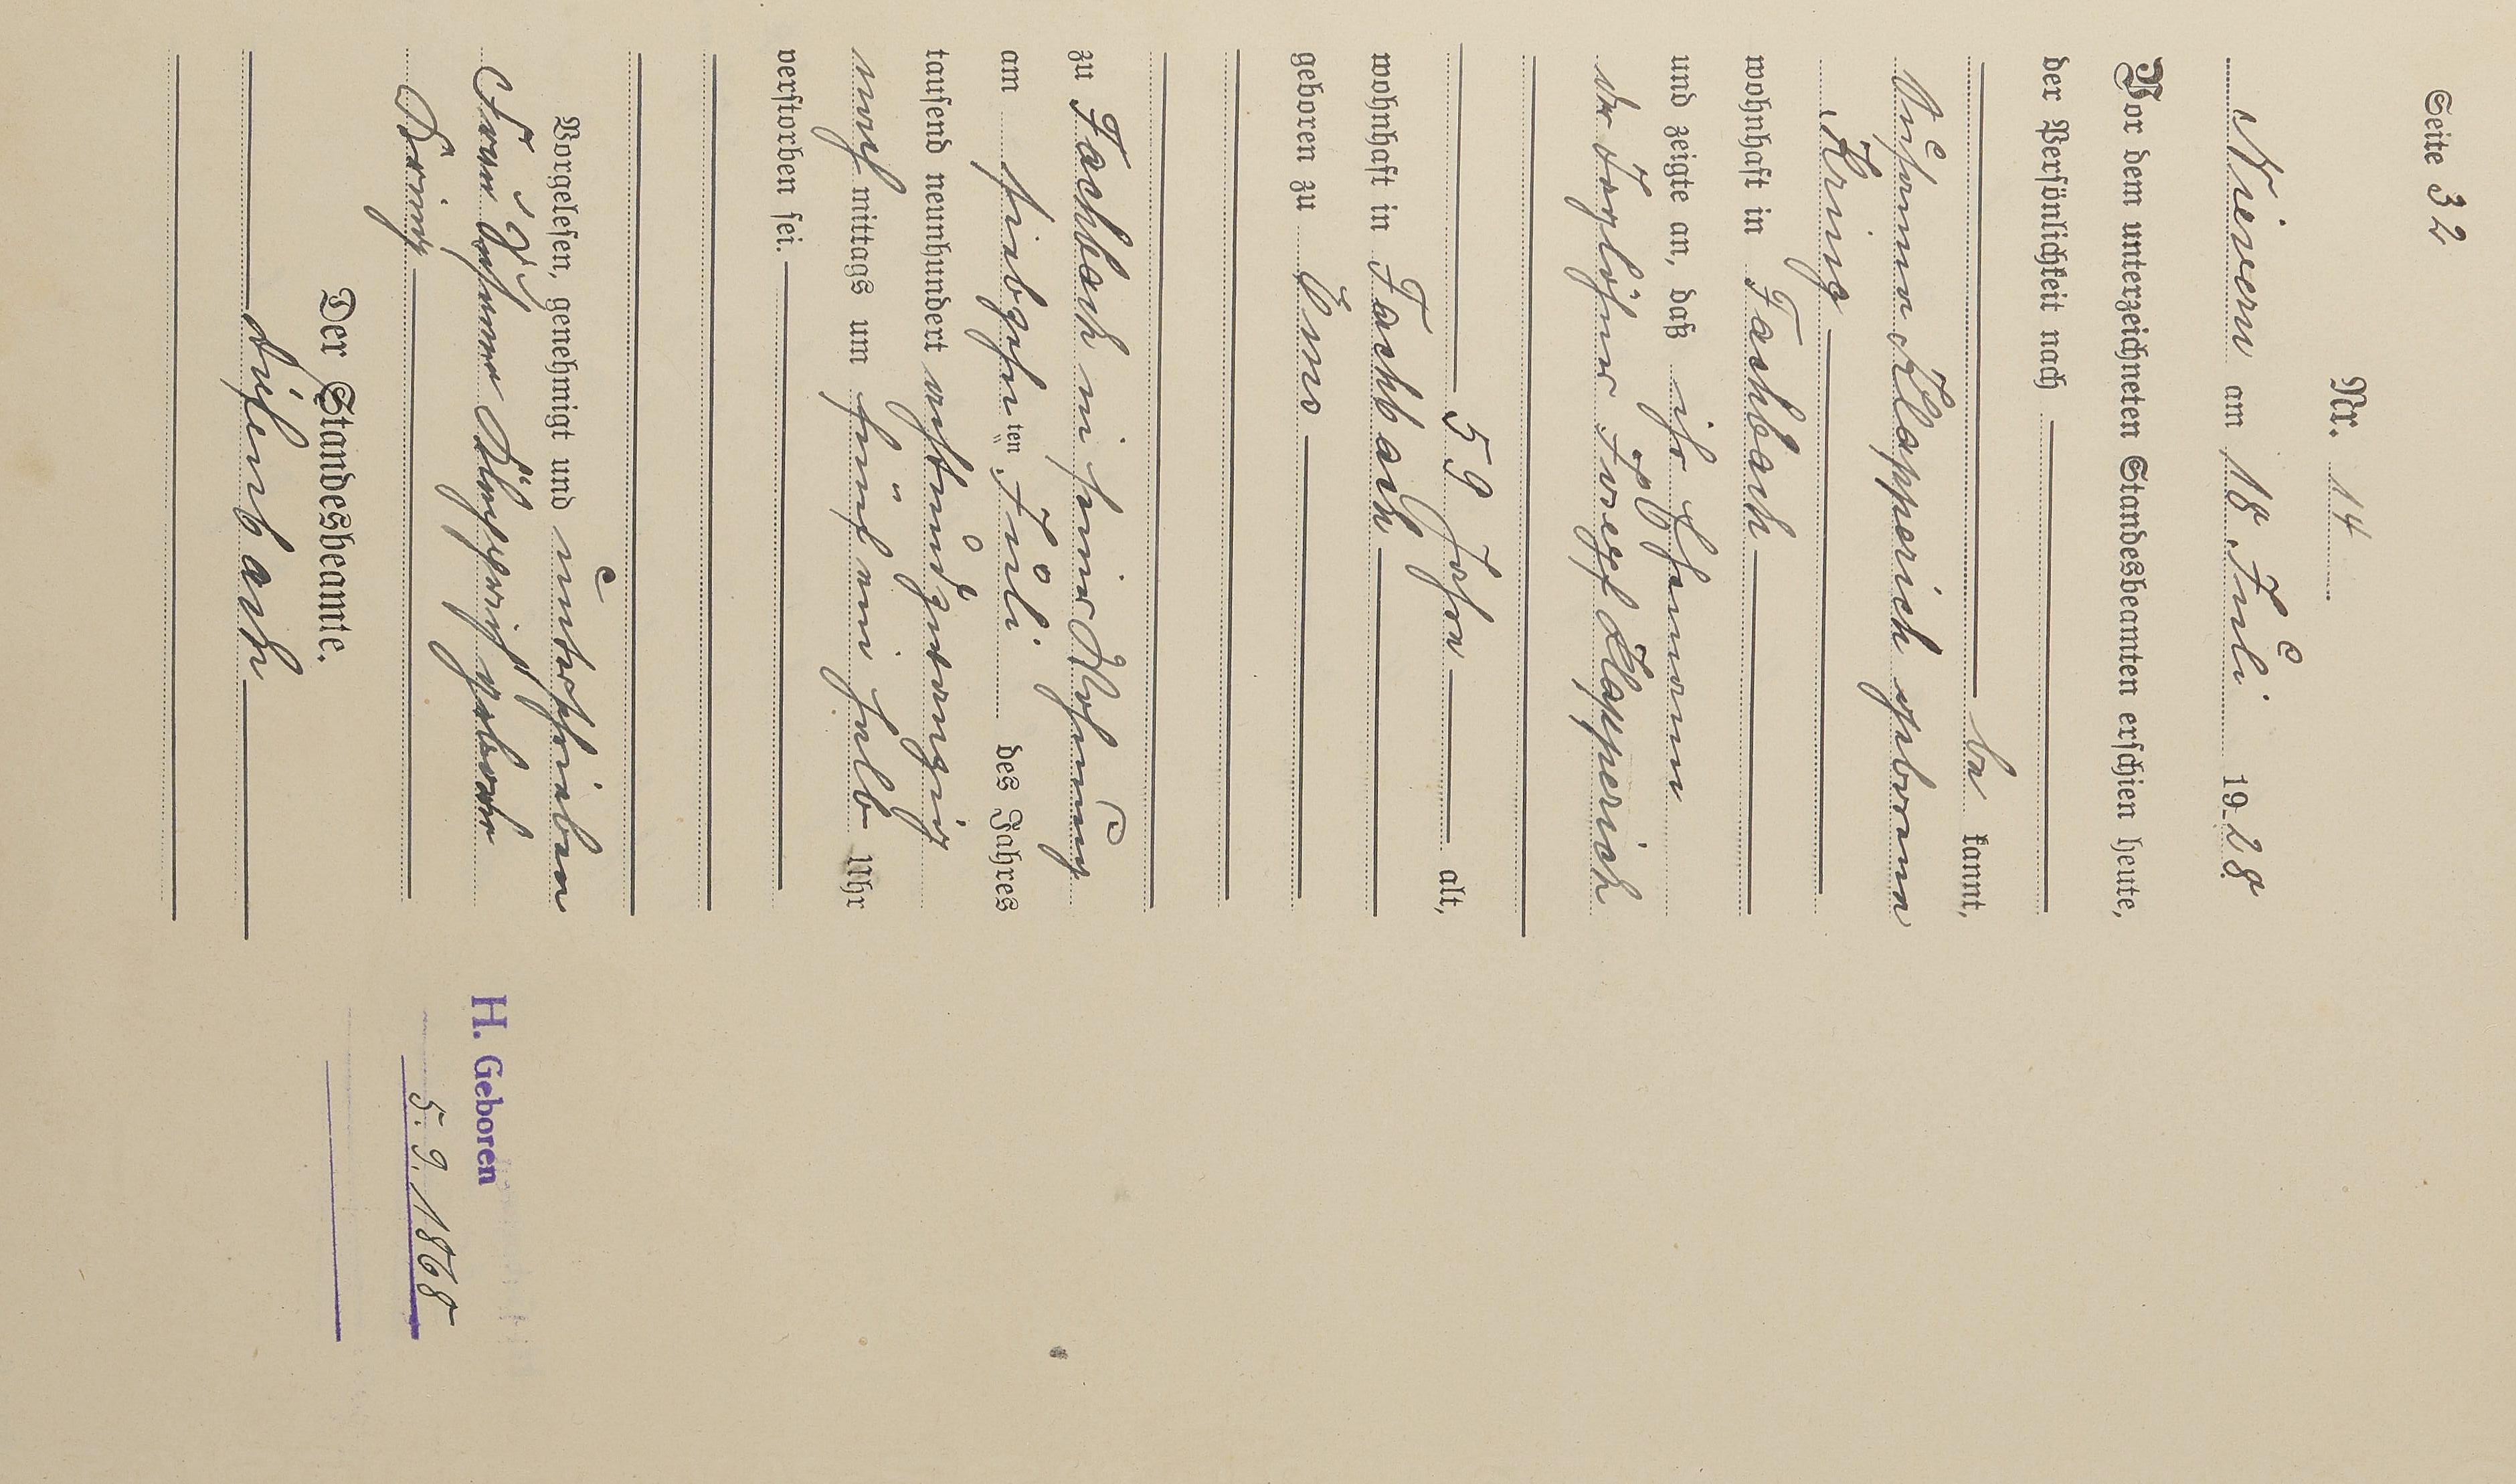 Seite 32
Nr. 14
Nievern am 18. Juli 1928
Vor dem unterzeichneten Standesbeamten erschien heute,
der Persönlichkeit nach
be kannt,
Klapperich geborene
Kring
wohnhaft in Fachbach
und zeigte an, daß ihr Ehemann
der Taglöhner Josef Klapperich
59 Jahre alt,
wohnhaft in Fachbach
geboren zu Ems
zu Fachbach in seiner Wohnung
am siebzehnten Juli des Jahres
tausend neunhundert achtundzwanzig
nachmittags um fünf ein halb Uhr
verstorben sei.
Vorgelesen, genehmigt und unterschrieben
Frau Klapperich geborene
Kring
Der Standesbeamte.
H. Geboren
5. 9. 1868